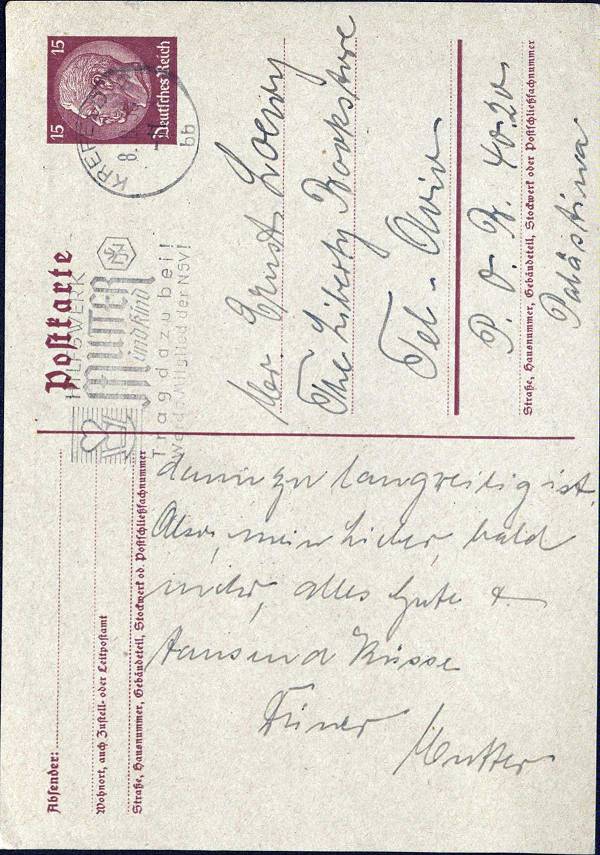 15 15
Deutsches Reich
KREFELD
8.
bb
Postkarte
HILFSWERK
MUTTER
und Kind
Trag dazu bei!
Werde Mitglied der NSV!
Mr. Ernst Loewy
The Liberty Bookstore
Tel-Aviv
P. O. B. 4020
Straße, Hausnummer, Gebäudeteil, Stockwerk oder Postschließfachnummer
Palästina
Absender:
Wohnort, auch Zustell- oder Leitpostamt
Straße, Hausnummer, Gebäudeteil, Stockwerk od. Postschließfachnummer
dann zu langweilig ist.
Also, mein Lieber, bald
mehr, alles Gute &
tausend Küsse
Deiner Mutter